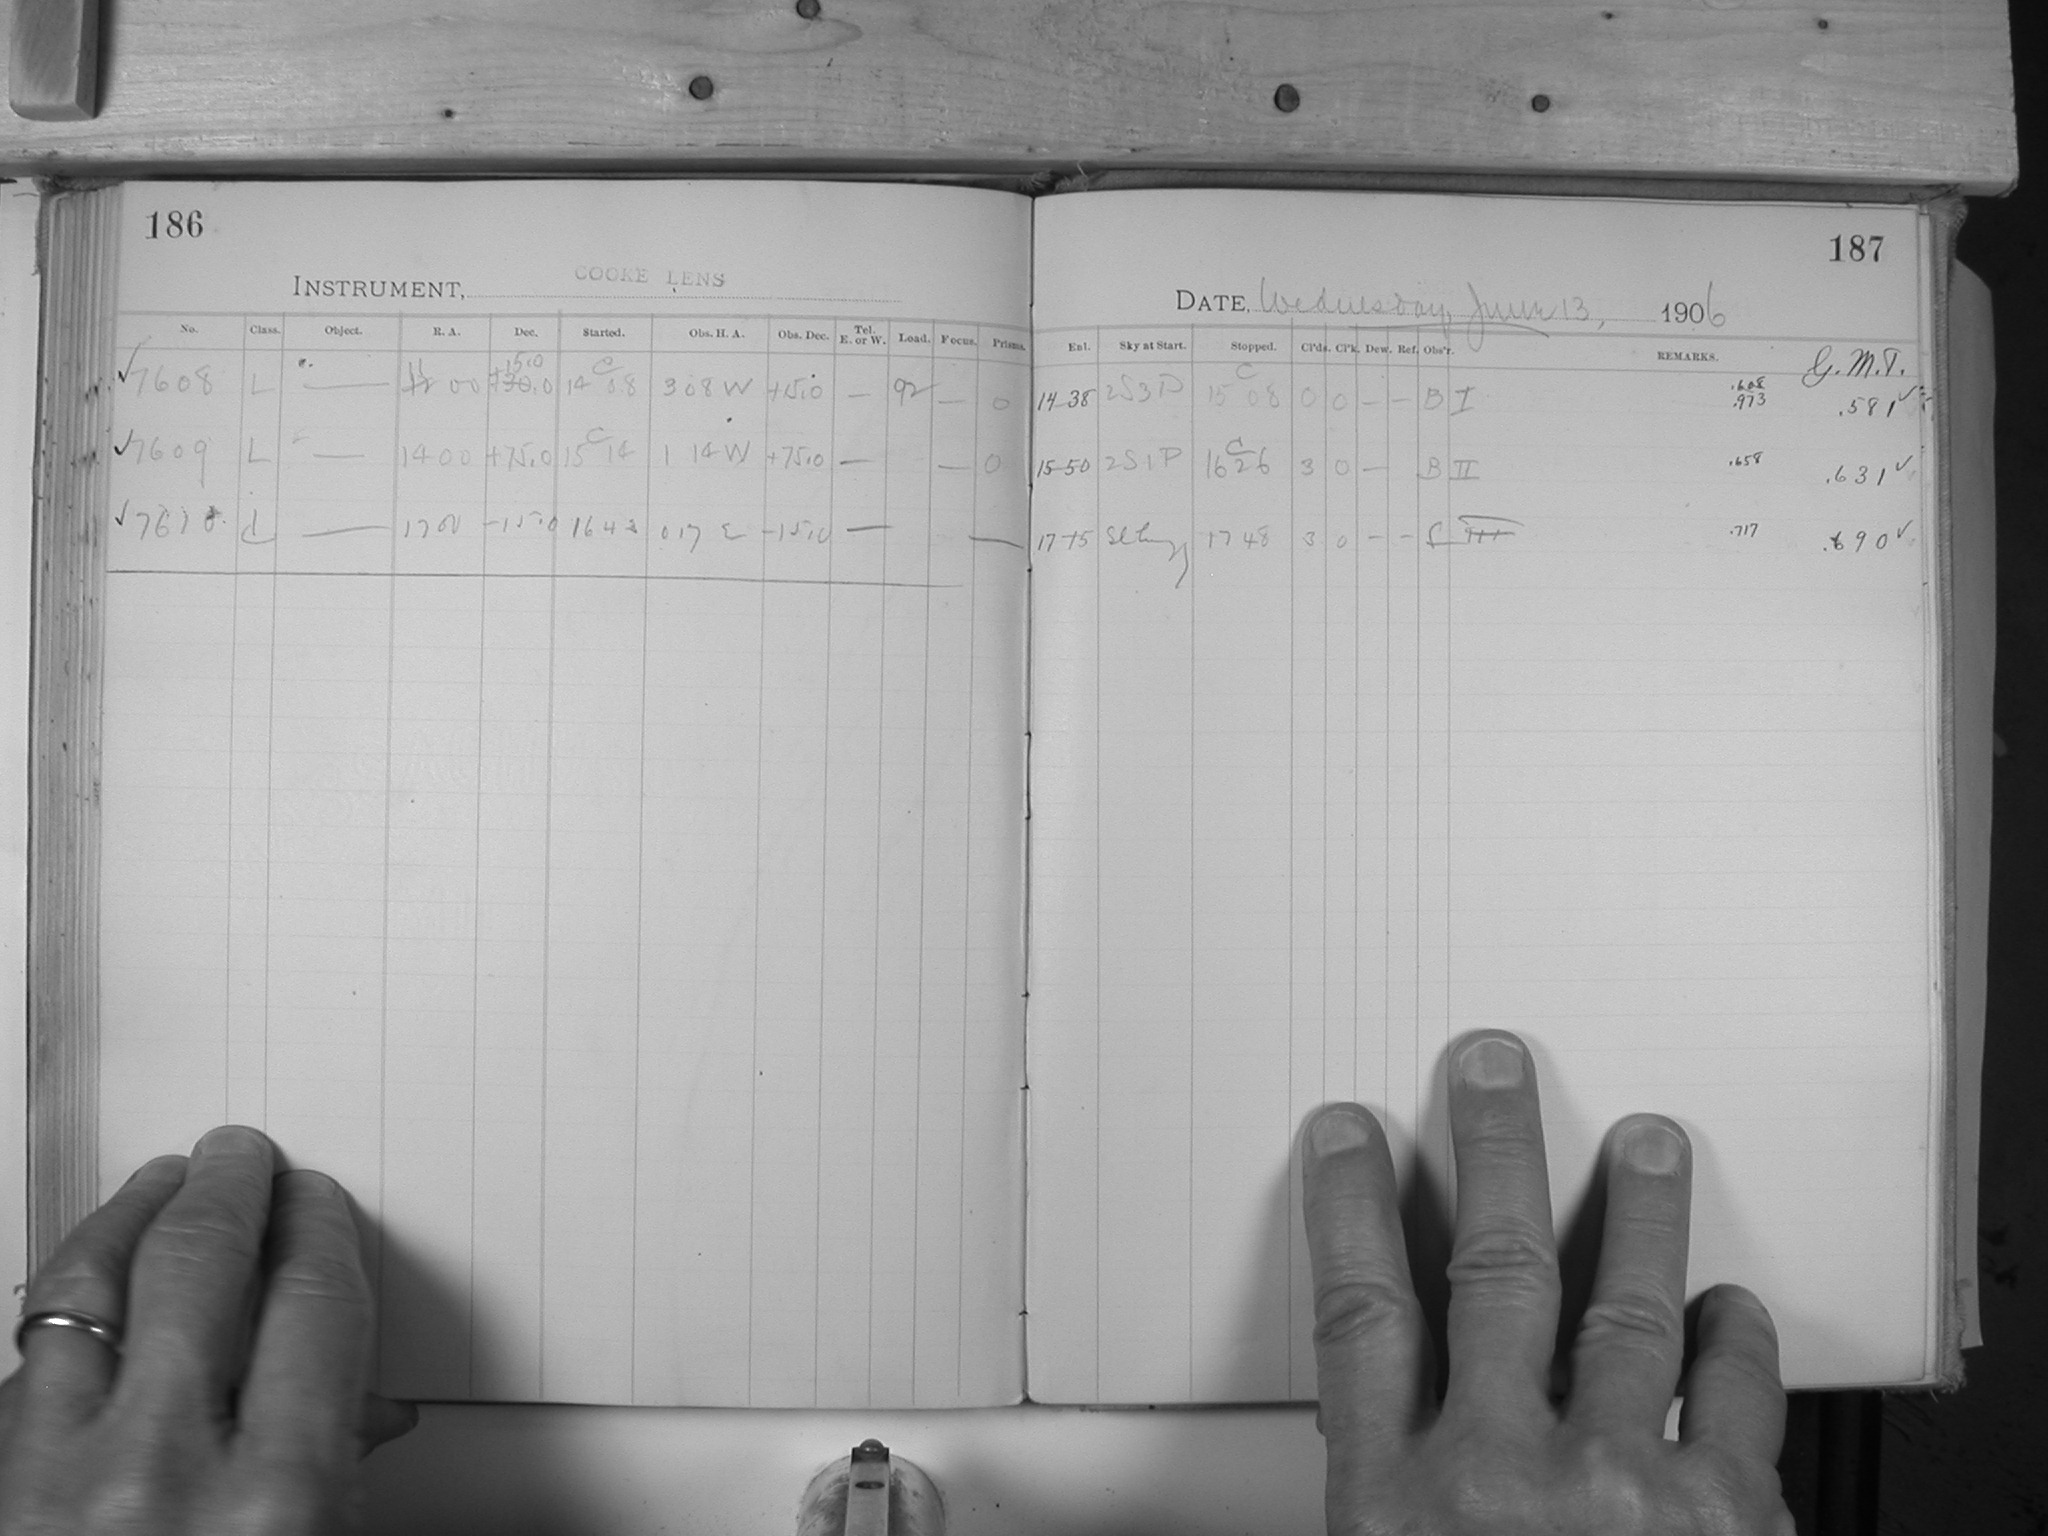 186
INSTRUMENT, COOKE LENS
No. Class. Object. R. A. Dec. Started. Obs. H. A. Obs. Dec. Tel. E. or W. Load. Focus. Prisms.
15.0
7608 L — 00 +30.0 14 08 3 08 W +15.0 — 92 — 0
7609 L — 14 00 +75.0 15 14 1 14 W +75.0 — — 0
— 17 00 -15.0 16 43 0 17 E -15.0 — —
187
DATE, Wednesday, June 13, 1906
Exl. Sky at Start. Stopped. Cl'ds. Cl'k. Dew. Ref. Obs'r. REMARKS. G. M. T.
14-38 2S3P 15 08 0 0 — — B I .608 .973 .581 ✓
15-50 2S1P 16 26 3 0 — B II .658 .631 ✓
17-15 17 48 3 0 — — III .717 .690 ✓